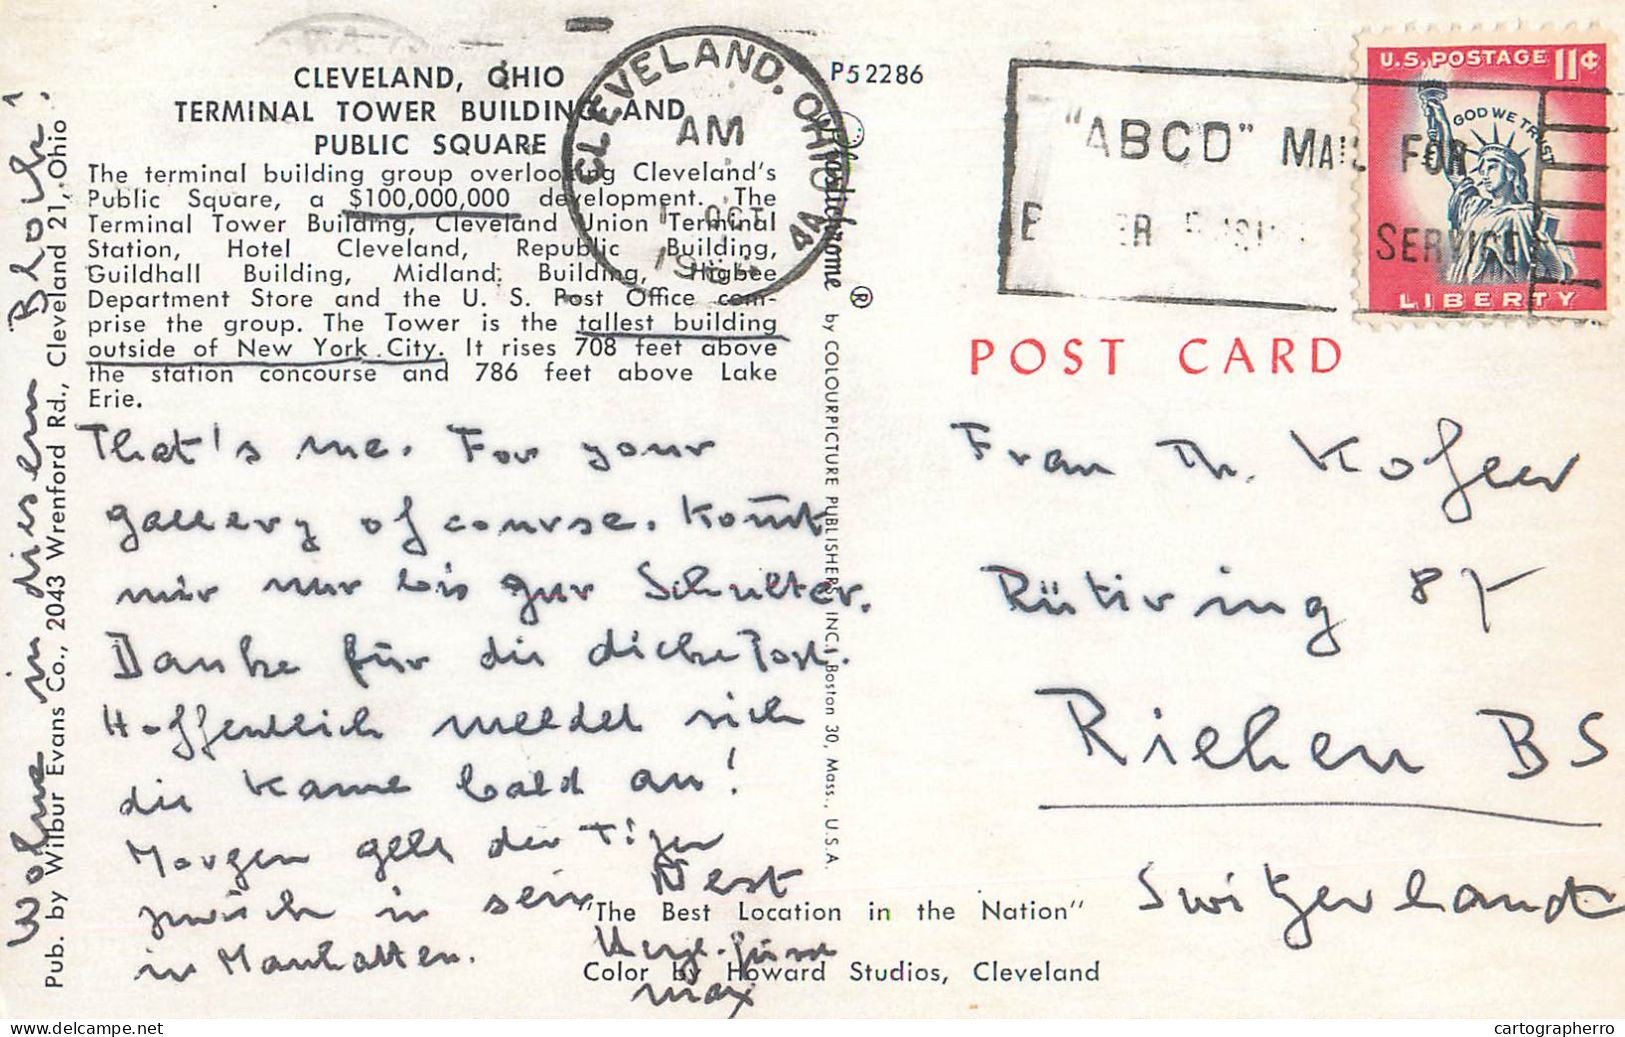 CLEVELAND, OHIO
TERMINAL TOWER BUILDING AND
PUBLIC SQUARE
The terminal building group overlooking Cleveland's
Public Square, a $100,000,000 development. The
Terminal Tower Building, Cleveland Union Terminal
Station, Hotel Cleveland, Republic Building,
Guildhall Building, Midland Building, Higbee
Department Store and the U. S. Post Office com-
prise the group. The Tower is the tallest building
outside of New York City. It rises 708 feet above
the station concourse and 786 feet above Lake
Erie.
That's me. For your
gallery of course. Kommt
mir nur bis zur Schulter.
Danke für die dicke Post.
Hoffentlich meldet sich
die Kanne bald an!
Morgen geht der Tiger
zurück in sein Nest
in Manhattan.
Max
Wohne in diesem Block!
Pub. by Wilbur Evans Co., 2043 Wrenford Rd., Cleveland 21, Ohio
"The Best Location in the Nation"
Color by Howard Studios, Cleveland
P52286
Plastichrome ® by COLOURPICTURE PUBLISHERS, INC., Boston 30, Mass., U.S.A.
CLEVELAND, OHIO
AM
OCT
"ABCD" MAIL FOR
SERVICE
U.S. POSTAGE 11¢
GOD WE TRUST
LIBERTY
POST CARD
Frau Th. Kofler
Rütiring 87
Riehen BS
Switzerland
www.delcampe.net
cartographerro